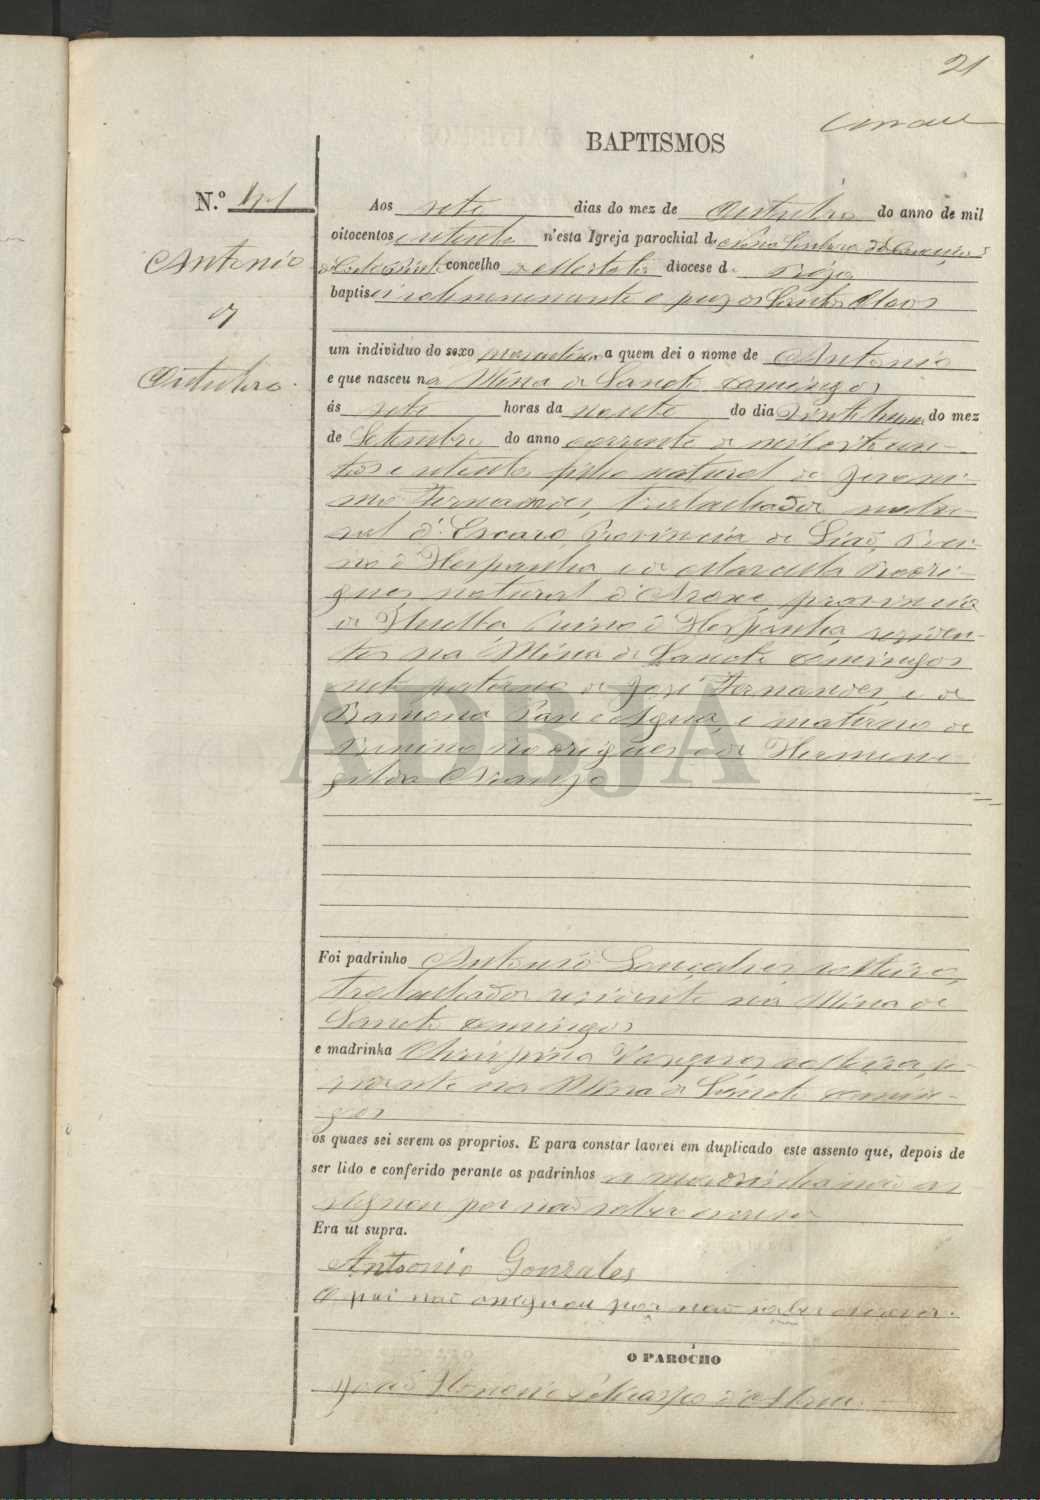 21
BAPTISMOS
N.º 41
Antonio
7
Outubro.
Aos sete dias do mez de Outubro do anno de mil
oitocentos e oitenta n'esta Igreja parochial de Nossa Senhora da Conceição
concelho de Mertola diocese de Beja
baptisei solemnemente e puz os Santos Oleos
um individuo do sexo masculino a quem dei o nome de Antonio
e que nasceu na Mina de Sancto Domingos
ás sete horas da noute do dia vinte e um do mez
de Setembro do anno corrente de mil oitocen-
tos e oitenta filho natural de Jeroni-
mo Fernandes, trabalhador natu-
ral d' Provincia de Lião, Rei-
no d'Hespanha e de Marcella Rodri-
gues natural d'Aroxe, provincia
de Huelba Reino d'Hespanha, residen-
tes na Mina de Sancto Domingos
neto paterno de José Fernandes, e de
Ramona e materno de
Rodrigues e de Hermene-
gilda Araujo
Foi padrinho Antonio Gonçalves solteiro,
trabalhador residente na Mina de
Sancto Domingos
e madrinha solteira, re-
sidente na Mina de Sancto Domin-
gos
os quaes sei serem os proprios. E para constar lavrei em duplicado este assento que, depois de
ser lido e conferido perante os padrinhos a madrinha não as-
signou por não saber escrever
Era ut supra.
Antonio Gonzales
O pai não assignou por não saber escrever.
O PAROCHO
d'Abreu
ADBJA